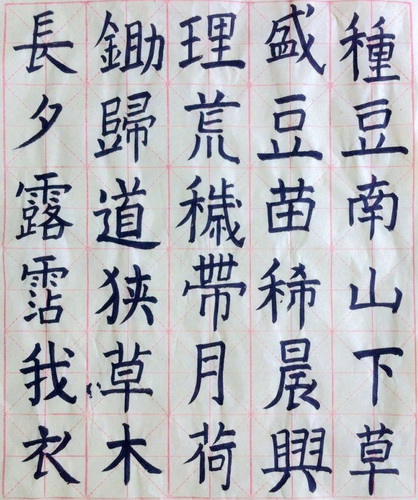 種豆南山下草
盛豆苗稀晨興
理荒穢帶月荷
鋤歸道狹草木
長夕露霑我衣